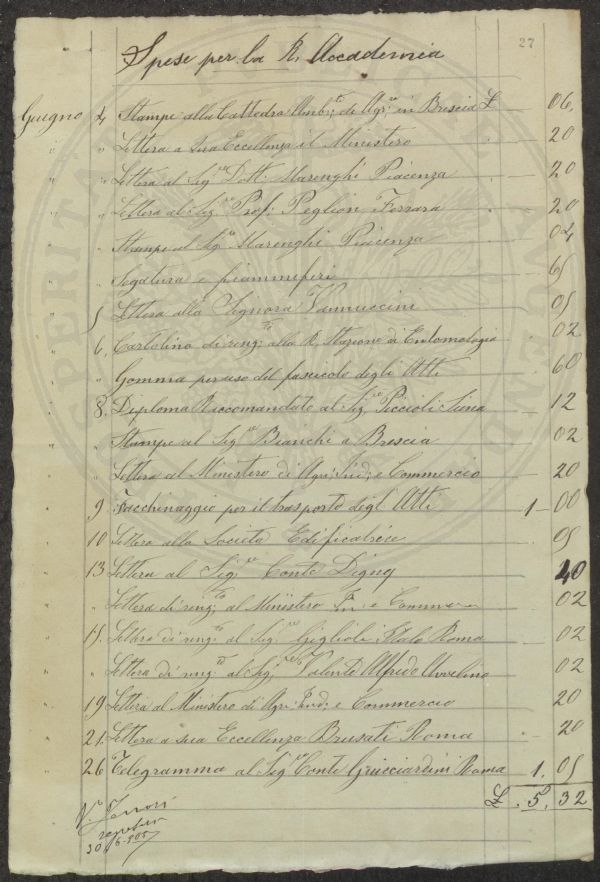 27
Spese per la R. Accademia
Giugno 4 Stampe alla Cattedra Amb:te di Agr:ra in Brescia £ 06
" " Lettera a sua Eccellenza il Ministero 20
" " Lettera al Sigre Dott. Marenghi Piacenza 20
" " Lettera al Sigre Prof: Peglion Ferrara 20
" " Stampe al Sigre Marenghi Piacenza 04
" " Segatura e fiammiferi 65
" 5 Lettera alla Signora Vannuccini 05
" 6. Cartolina di ring:to alla R. Stazione di Entomologia 02
" " Gomma per uso del fascicolo degli Atti 60
" 8. Diploma Raccomandato al Sigre Piccioli Siena 12
" " Stampe al Sigre Bianchi a Brescia 02
" " Lettera al Ministero di Agri: Ind: e Commercio 20
" 9 Facchinaggio per il trasporto degl'Atti 1-00
" 10 Lettera alla Societa Edificatrice 05
" 13 Lettera al Sigre Conte Digny 40
" " Lettera di ring:to al Ministero e 02
" 15. Lettera di ring:to al Sigre Giglioli Italo Roma 02
" " Lettera di ring:to al Sigre Valente Alfredo Avvelino 02
" 19 Lettera al Ministero di Agri: Ind: e Commercio 20
" 21. Lettera a sua Eccellenza Brusati Roma 20
" 26 Telegramma al Sigre Conte Guicciardini Roma 1. 05
£ 5. 32
Vo
30 6-905